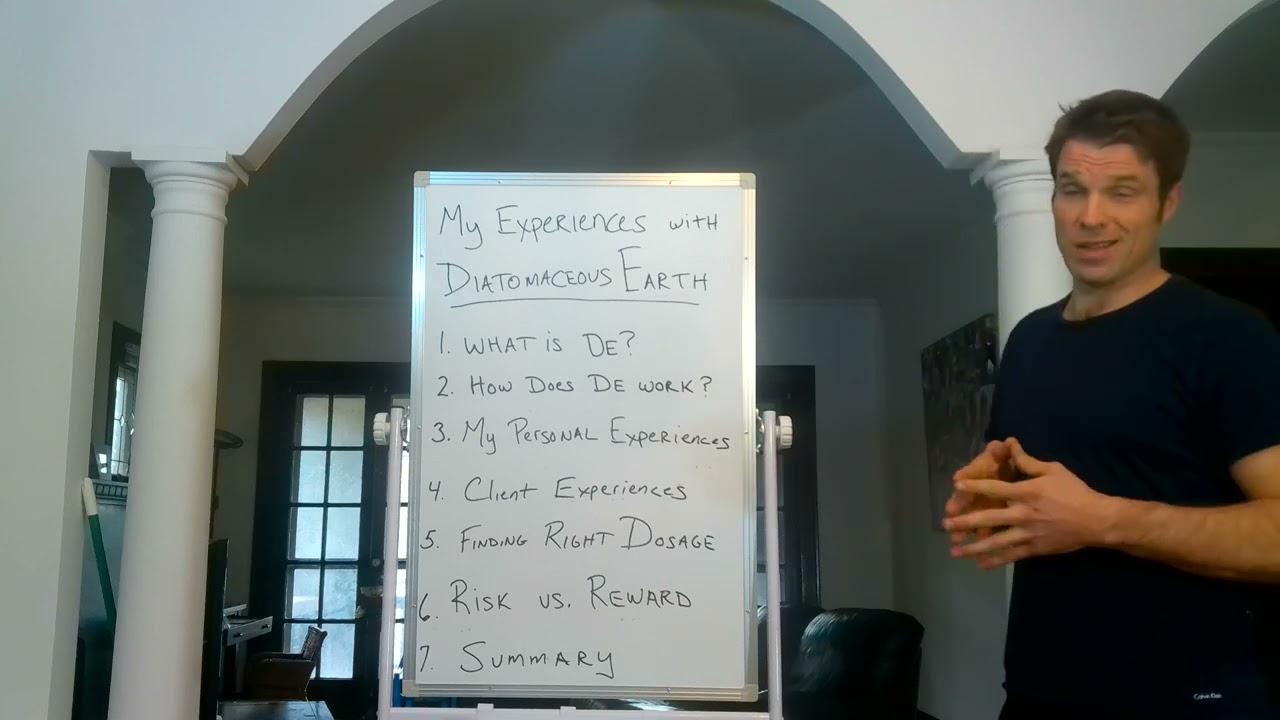 My Experiences with
Diatomaceous Earth
1. What is DE?
2. How Does DE work?
3. My Personal Experiences
4. Client Experiences
5. Finding Right Dosage
6. Risk vs. Reward
7. Summary
Calvin Klein